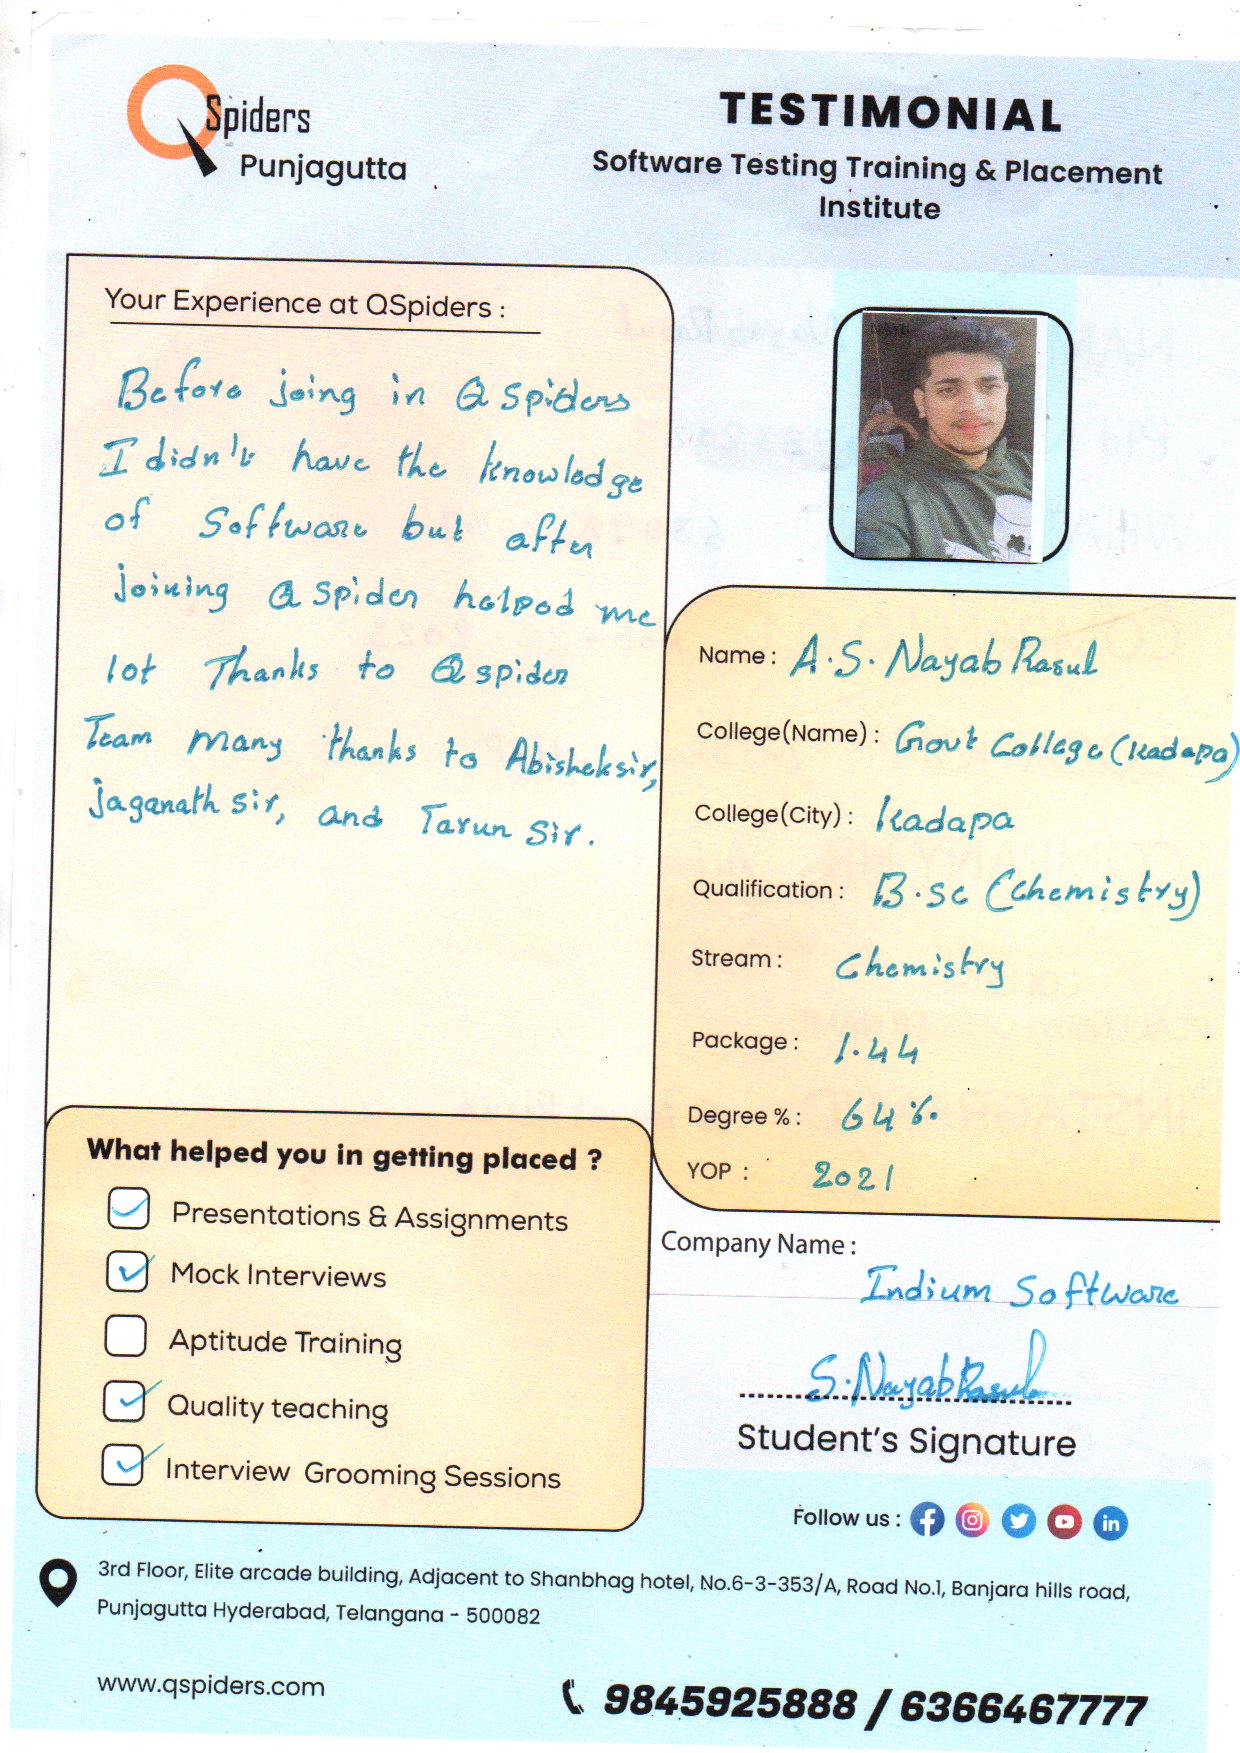 QSpiders
Punjagutta
TESTIMONIAL
Software Testing Training & Placement
Institute
Your Experience at QSpiders :
Before joing in Q spiders
I didn't have the knowledge
of Software but after
joining Q spider helped me
lot Thanks to Q spider
Team many thanks to Abishek sir,
jaganath sir, and Tarun Sir.
Name : A.S. Nayab Rasul
College(Name) : Govt College (Kadapa)
College(City) : Kadapa
Qualification : B.sc (Chemistry)
Stream : Chemistry
Package : 1.44
Degree % : 64%
YOP : 2021
What helped you in getting placed ?
Presentations & Assignments
Mock Interviews
Aptitude Training
Quality teaching
Interview Grooming Sessions
Company Name :
Indium Software
S. Nayab Rasul
Student's Signature
Follow us :
3rd Floor, Elite arcade building, Adjacent to Shanbhag hotel, No.6-3-353/A, Road No.1, Banjara hills road,
Punjagutta Hyderabad, Telangana - 500082
www.qspiders.com
9845925888 / 6366467777